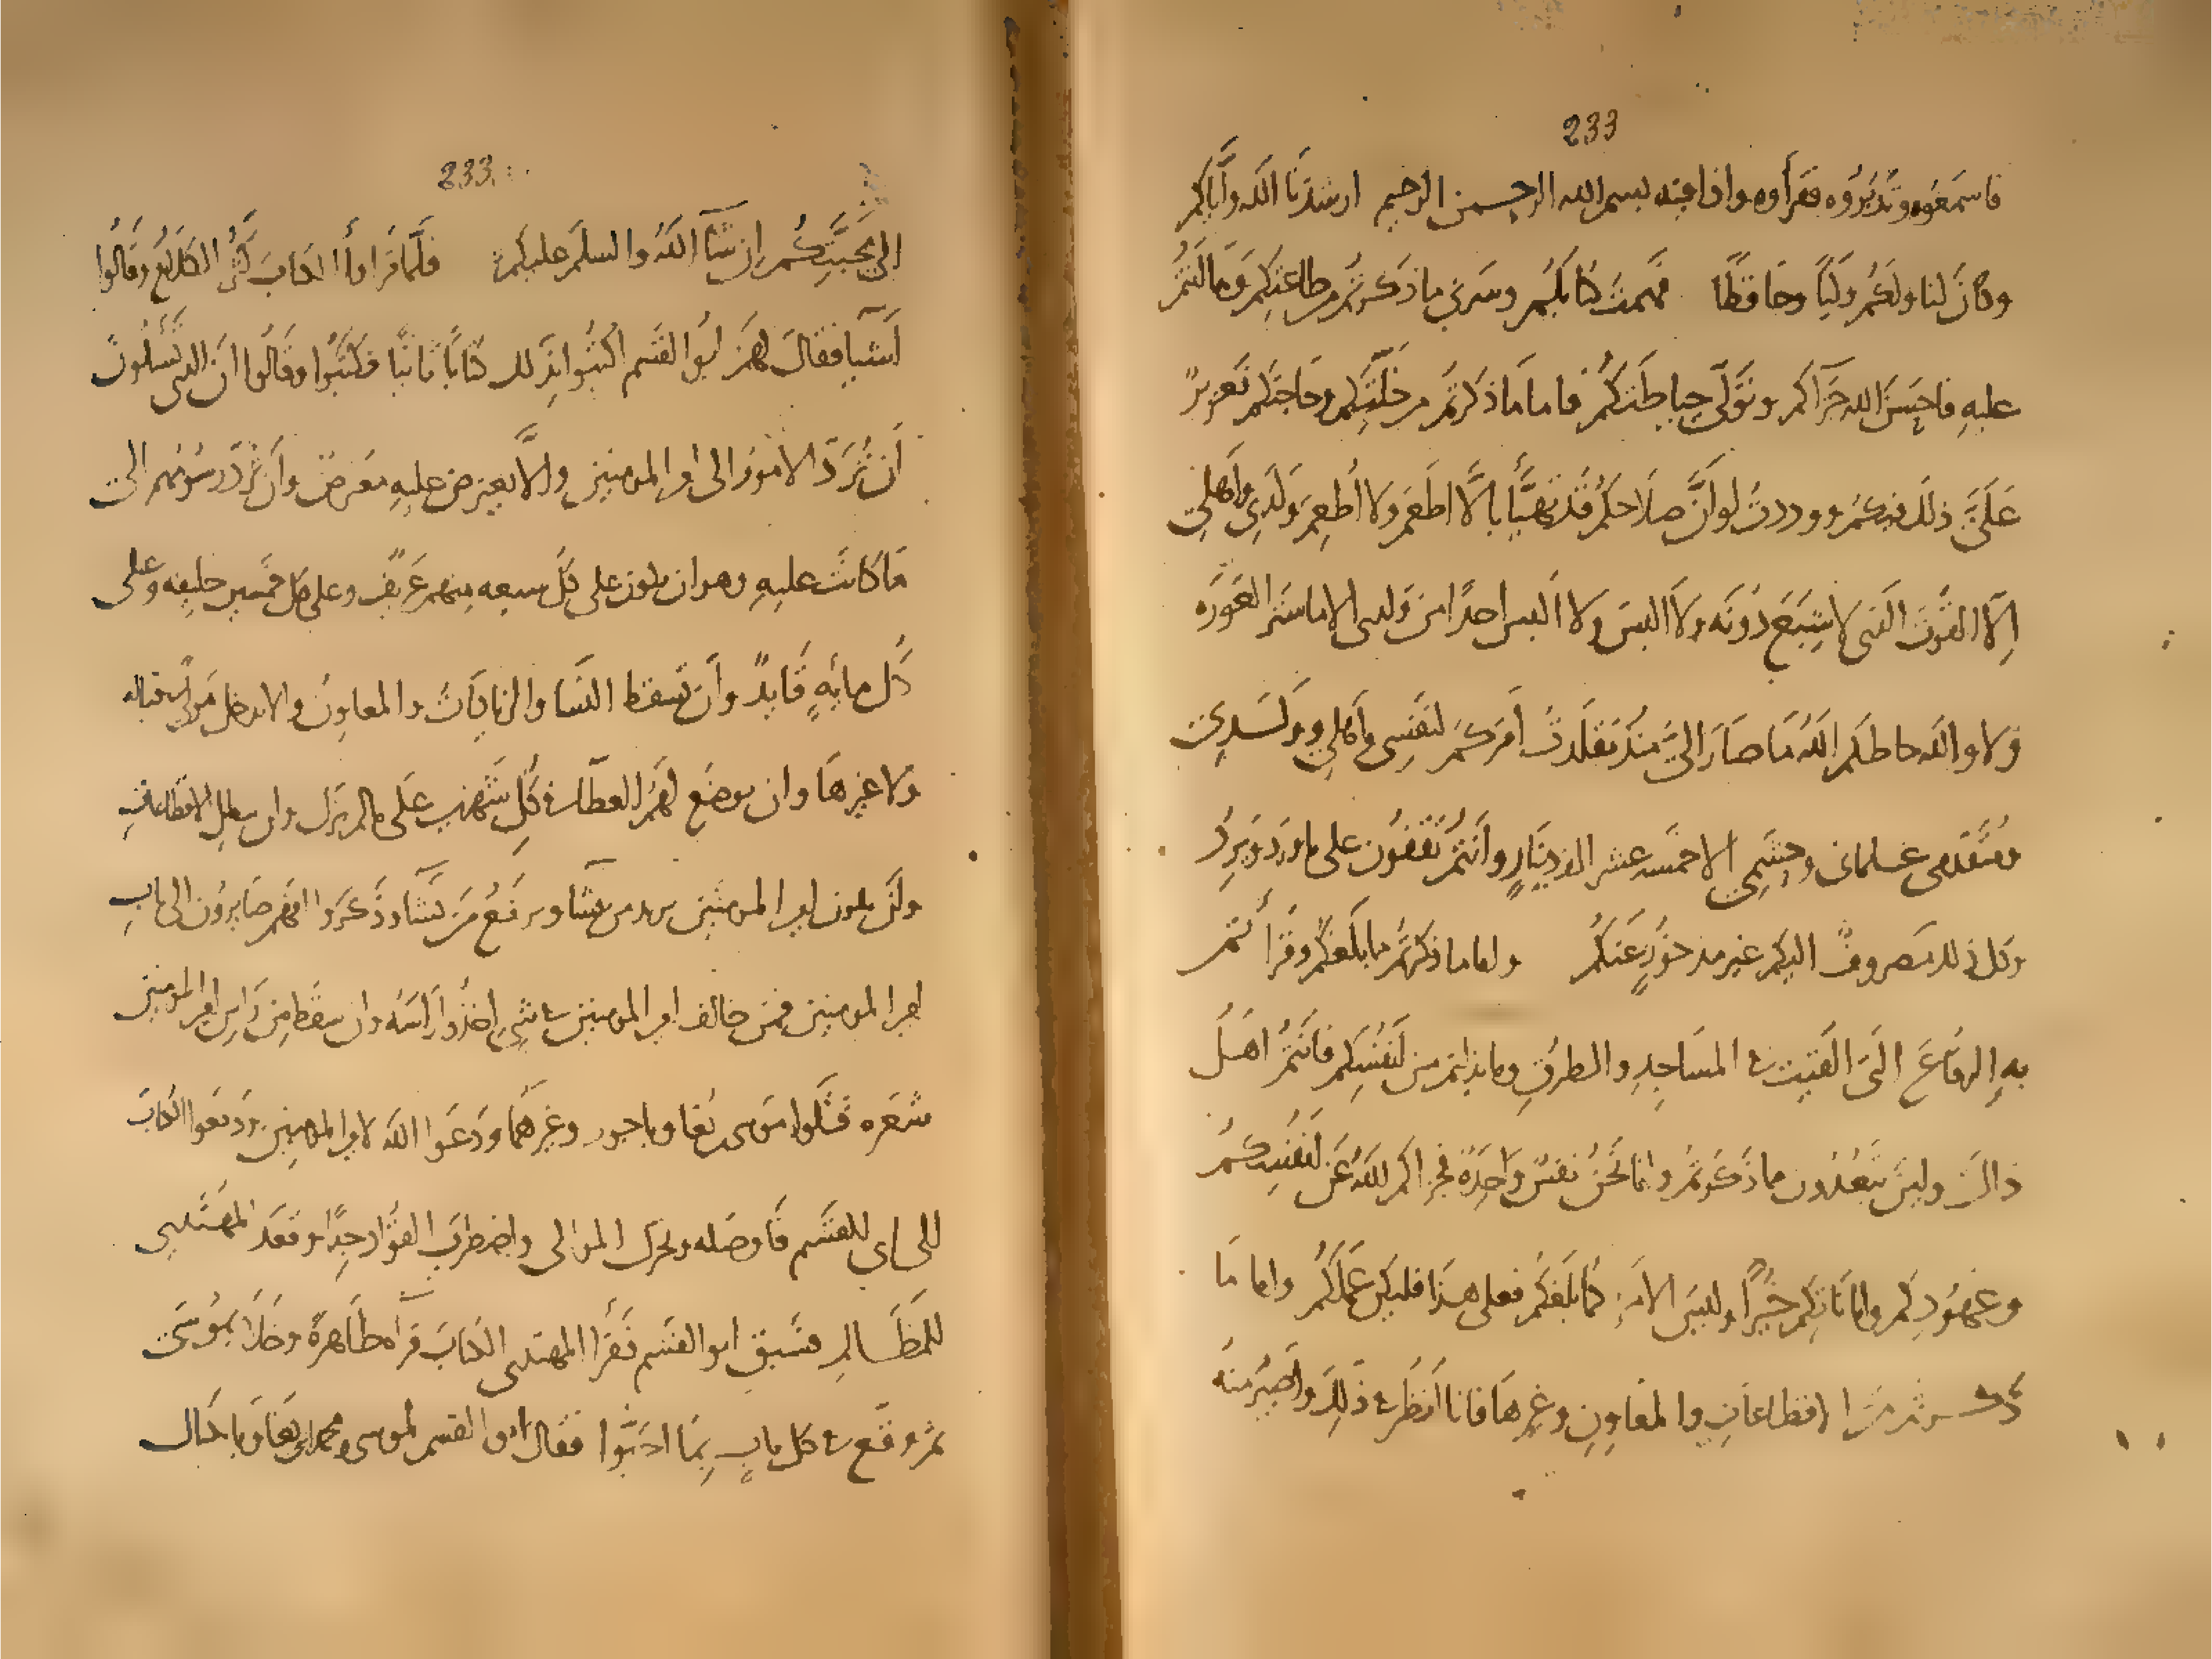 233
فاسمعوه وتدبروه فقرأوه واذا فيه بسم الله الرحمن الرحيم ارشدنا الله واياكم
وكان لنا ولكم وليا وحافظا فهمت كتابكم وسرني ما ذكرتم من طاعتكم وما انتم
عليه فاحسن الله جزاكم وتولى حياطتكم فاما ما ذكرتم من خلتكم وحاجتكم فعزيز
على ذلك فيكم ووددت لو ان صلاحكم قد تهيأ بالا اطعم ولا اطعم ولدي واهلي
الا القوت الذى لا شبع دونه ولا البس ولا البس احدا من ولدى الا ما ستر العورة
ولا والله حاطكم الله ما صار الي منذ تقلدت امركم لنفسي واهلي وولدي
ومتقدمى غلمانى وحشمي الا خمسه عشر الف دينار وانتم تقفون على ما ورد ويرد
وكل ذلك مصروف اليكم غير مدخور عنكم واما ما ذكرتم مما بلغكم وقرأتم
به الرقاع التي القيت في المساجد والطرق وما بذلتم من انفسكم فانتم اهل
ذاك واين تبعدون مما ذكرتم وانما نحن نفس واحدة فجزاكم الله عن انفسكم
وعهودكم واماناتكم خيرا وليس الامر كما بلغكم فعلى هذا فليكن عملكم واما ما
ذكرتم من الاقطاعات والمعاون وغيرها فانا انظر في ذلك واصير منه
233
الى محبتكم ان شآ الله والسلم عليكم فلما قرأوا الكتاب كثر الكلام وقالوا
اشيا فقال لهم ابو القسم اكتبوا بذلك كتابا ثانيا فكتبوا وقالوا ان الذى نسلون
ان ترد الامور الى امير المومنين والا يعترض عليه معترض وان ترد رسومهم الى
ما كانت عليه وهو ان يكون على كل تسعه منهم عريف وعلى كل خمسين خليفه وعلى
كل مايه قايد وان تسقط النسا والزيادات والمعاون والا يدخل مولى في قباله
ولا غيرها وان يوضع لهم العطآ في كل شهرين على ما لم يزل وان تبطل الاقطاعات
وان يكون امير المومنين يزيد من يشآ ويرفع من يشآ وذكروا انهم صايرون الى باب
امير المومنين فمن خالف امير المومنين في شي اخذوا راسه وان سقط من راس امير المومنين
شعره قتلوا موسى بن بغا وباجور وغيرهما ودعوا الله لامير المومنين ودفعوا الكتاب
الى ابي القسم فاوصله وتحرك الموالى واضطرب القواد جدا وقعد المهتدي
للمظالم فسبق ابو القسم فقرأ المهتدى الكتاب قراه ظاهرة وخلا بموسى
ثم وقع في كل باب بما احبوا فقال ابو القسم لموسى ومحمد ابن بغا وباكباك